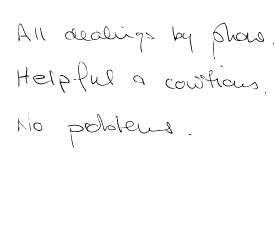 All dealings by phone.
Helpful & courteous.
No problems.